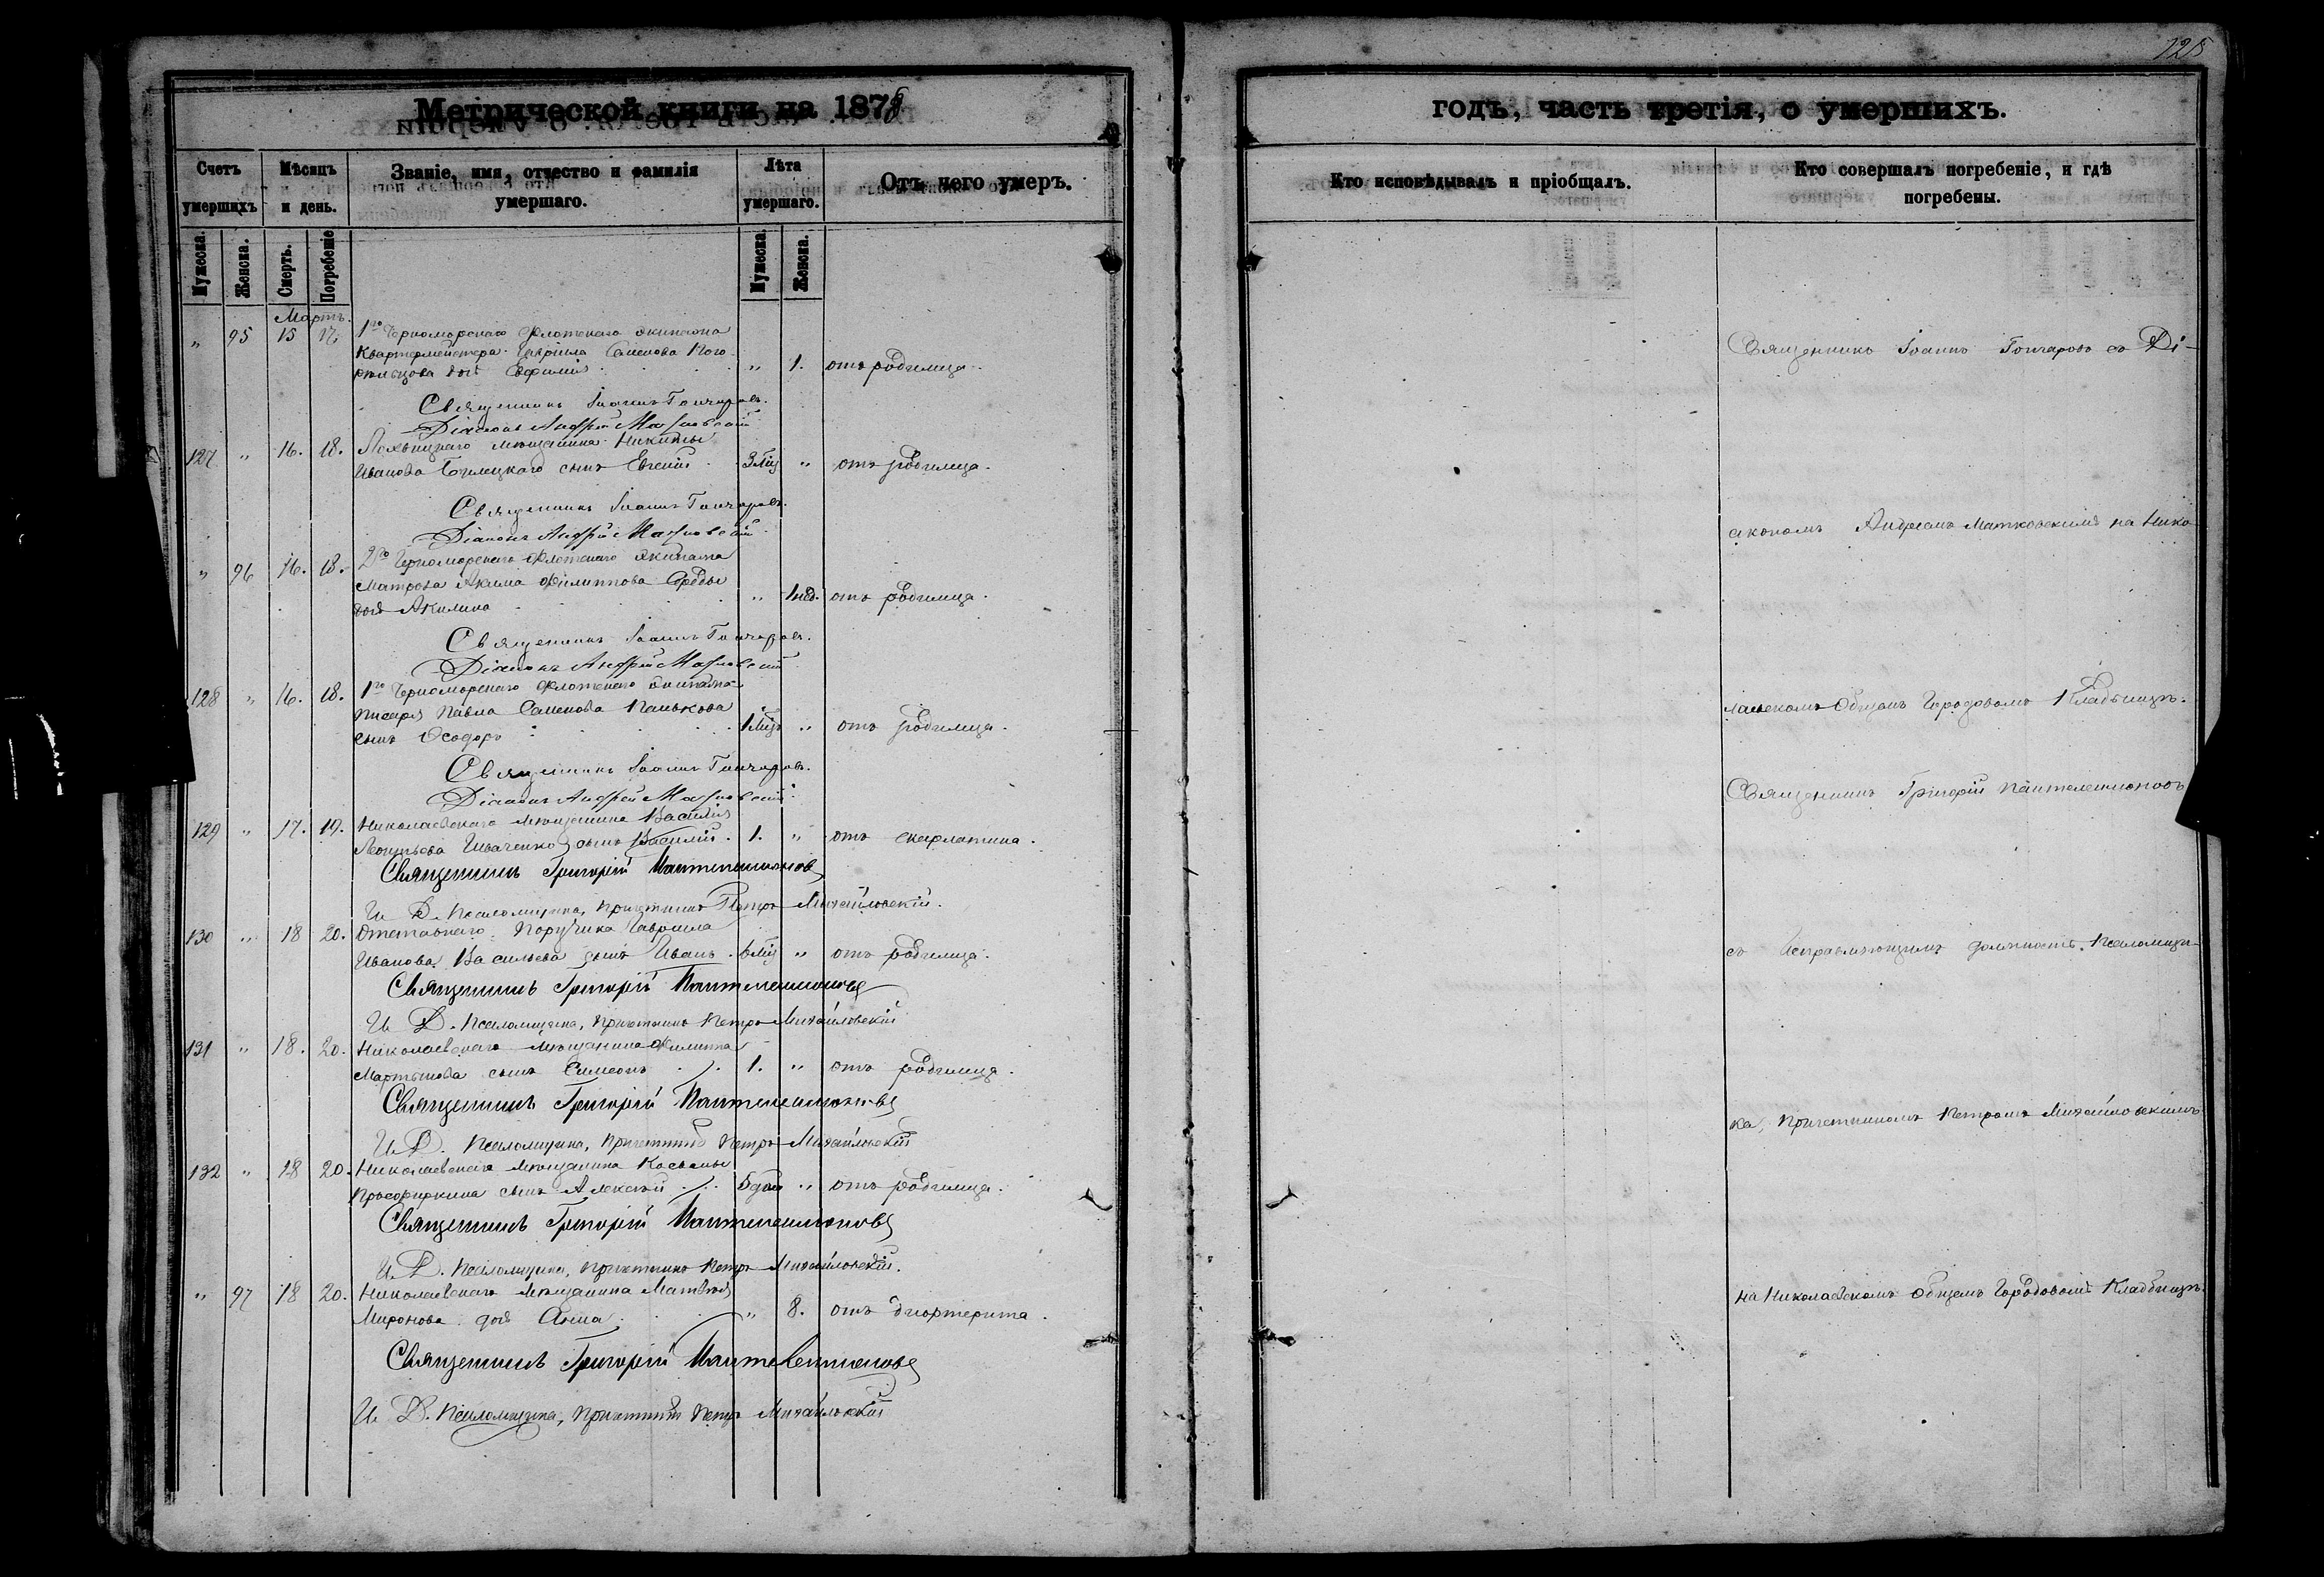 125
Метрической книги на 1878
годъ, часть третія, о умершихъ.
Счетъ умершихъ
Мѣсяцъ и день.
Званіе, имя, отчество и фамилія умершаго.
Лѣта умершаго.
Отъ чего умеръ.
Кто исповѣдывалъ и пріобщалъ.
Кто совершалъ погребеніе, и гдѣ погребены.
Мужеска. Женска. Смерть. Погребеніе Мужеска. Женска.
Мартъ.
" 95 15 17. 1го Черноморскаго флотскаго экипажа
Квартермейстера Гавріила Семенова
дочь Евфимія " 1. отъ родимца.
Священникъ Іоаннъ Гончаровъ.
Діаконъ Андрей Матковскій
127 " 16. 18. Лохвицкаго мѣщанина Никиты
Иванова Билецкаго сынъ Евгеній 3 Мѣс " отъ родимца.
Священникъ Іоаннъ Гончаровъ.
Діаконъ Андрей Матковскій
" 96 16. 18. 2го Черноморскаго флотскаго экипажа
Матроса Акима Филиппова
дочь Акилина " 1 нед. отъ родимца.
Священникъ Іоаннъ Гончаровъ.
Діаконъ Андрей Матковскій
128 " 16. 18. 1го Черноморскаго флотскаго экипажа
писаря Павла Семенова Панькова
сынъ Ѳеодоръ 1 Мѣс " отъ родимца.
Священникъ Іоаннъ Гончаровъ.
Діаконъ Андрей Матковскій
129 " 17. 19. Николаевскаго мѣщанина Василія
Леонтьева Иваченко сынъ Василій. 1. " отъ скарлатина.
Священникъ Григорій Пантелеимоновъ
И. Д. Псаломщика, Причетникъ Петръ Михайловскій.
130 " 18 20. Отставнаго Поручика Гавріила
Иванова Васильева сынъ Иванъ. 6 Мѣс " отъ родимца.
Священникъ Григорій Пантелеимоновъ
И. Д. Псаломщика, Причетникъ Петръ Михайловскій
131 " 18. 20. Николаевскаго мѣщанина Филиппа
Мартынова сынъ Симеонъ 1. " отъ родимца.
Священникъ Григорій Пантелеимоновъ
И. Д. Псаломщика, Причетникъ Петръ Михайловскій
132 " 18 20. Николаевскаго мѣщанина Косьмы
Просфиркина сынъ Алексѣй 5 дней " отъ родимца.
Священникъ Григорій Пантелеимоновъ
И. Д. Псаломщика, Причетникъ Петръ Михайловскій.
" 97 18 20. Николаевскаго мѣщанина Матвѣя
Миронова дочь Анна " 8. отъ дифтерита.
Священникъ Григорій Пантелеимоновъ
И. Д. Псаломщика, Причетникъ Петръ Михайловскій
Священникъ Іоаннъ Гончаровъ съ Ді-
акономъ Андреемъ Матковскимъ на Нико-
лаевскомъ Общемъ Городовомъ Кладбищѣ.
Священникъ Григорій Пантелеимоновъ
съ Исправляющимъ должность Псаломщи-
ка, Причетникомъ Петромъ Михайловскимъ
на Николаевскомъ Общемъ Городовомъ Кладбищѣ.